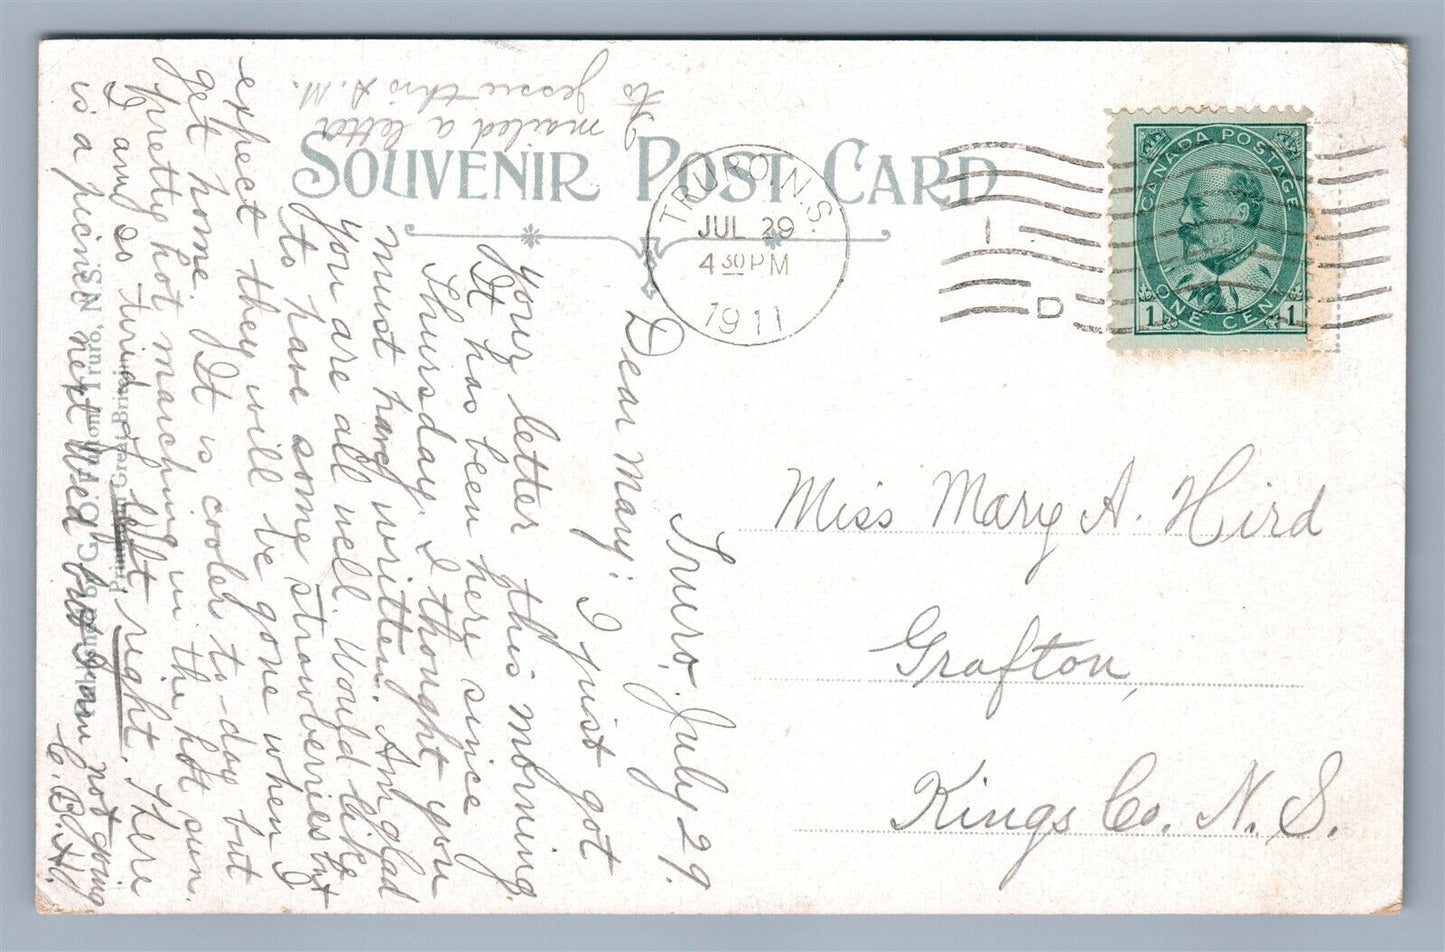 SOUVENIR POST CARD
TRURO, N.S.
JUL 29
4 30 PM
1911
1
D
CANADA POSTAGE
ONE CENT
1 1
Miss Mary A. Hird
Grafton,
Kings Co. N. S.
Truro, July 29.
Dear Mary: I just got
your letter this morning
It has been here since
Thursday. I thought you
must have written. Am glad
you are all well. Would like
to have some strawberries but
expect they will be gone when I
get home. It is cooler to-day but
pretty hot marching in the hot sun.
I am so tired of left right. There
is a picnic next Wed but I am not going
C. B. H.
I mailed a letter
to Jessie this A.M.
Published by G. O. Fulton, Truro, N.S.
Printed in Great Britain